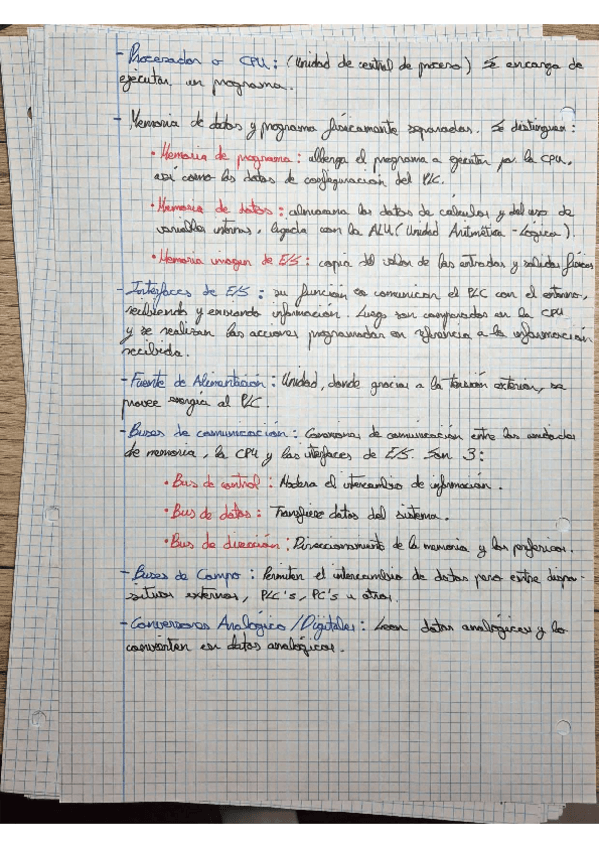 - Procesador o CPU: (Unidad de central de proceso) Se encarga de
ejecutar un programa.
- Memoria de datos y programa físicamente separadas. Se distinguen:
• Memoria de programa: alberga el programa a ejecutar por la CPU,
así como los datos de configuración del PLC.
• Memoria de datos: almacena los datos de cálculos y del uso de
variables internas, ligada con la ALU (Unidad Aritmética - Lógica)
• Memoria imagen de E/S: copia del valor de las entradas y salidas físicas
- Interfaces de E/S: su función es comunicar el PLC con el entorno,
recibiendo y enviando información. Luego son comparados en la CPU
y se realizan las acciones programadas en referencia a la información
recibida.
- Fuente de Alimentación: Unidad, donde gracias a la tensión exterior, se
provee energía al PLC.
- Buses de comunicación: Conexiones de comunicación entre las unidades
de memoria, la CPU y las interfaces de E/S. Son 3:
• Bus de control: Modera el intercambio de información.
• Bus de datos: Transfiere datos del sistema.
• Bus de dirección: Direccionamiento de la memoria y los periféricos.
- Buses de Campo: Permiten el intercambio de datos pero entre dispo-
sitivos externos, PLC's, PC's u otros.
- Conversores Analógico/Digitales: Leen datos analógicos y lo
convierten en datos analógicos.